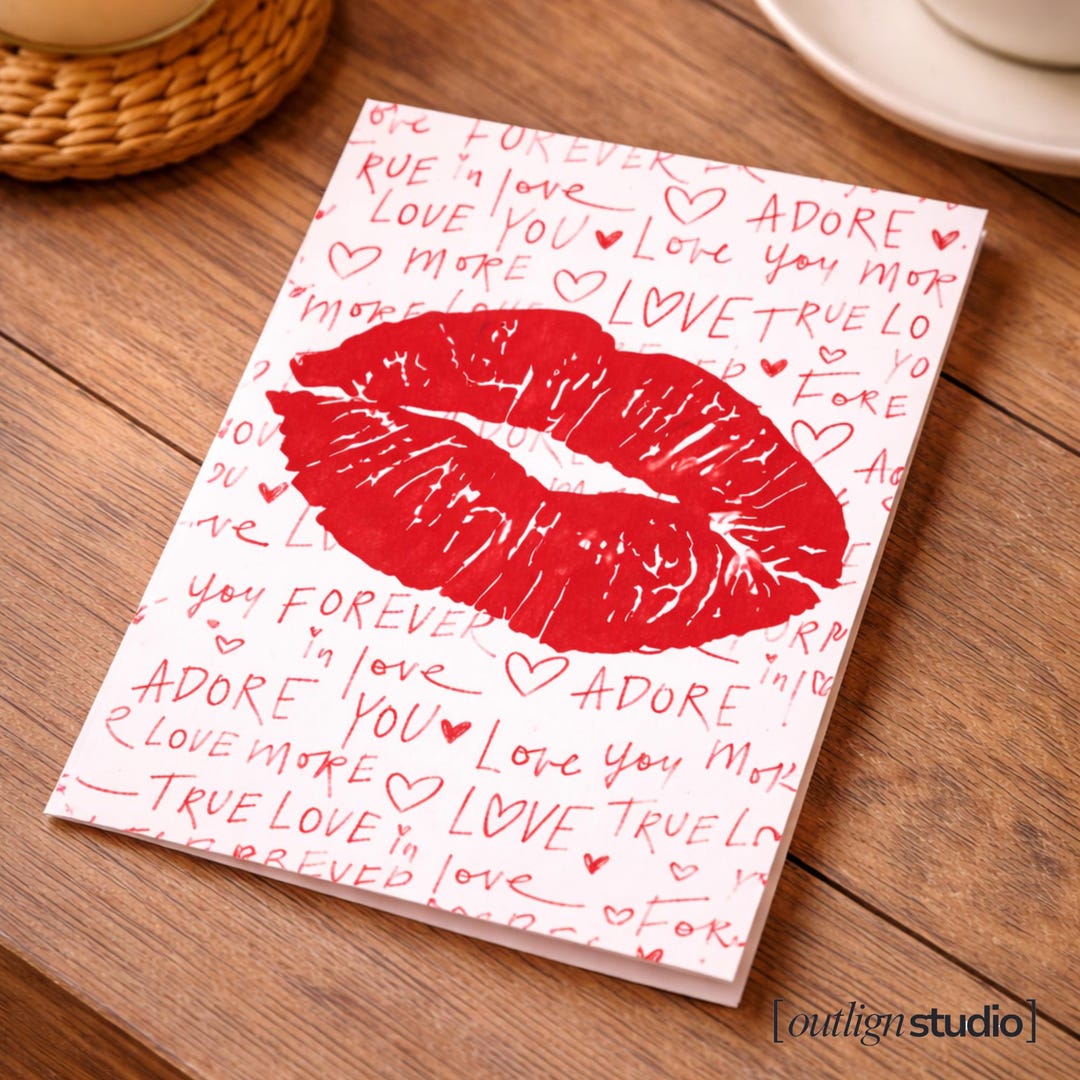 ove FOREVER
RUE in love ADORE
LOVE YOU Love you MOR
MORE LOVE TRUE LO
MORE LOVE YO
FORE
OU
ve
you FOREVER
in love ADORE in
ADORE YOU Love you MOR
LOVE MORE LOVE TRUE L
TRUE LOVE in
love FOR
[outlign studio]